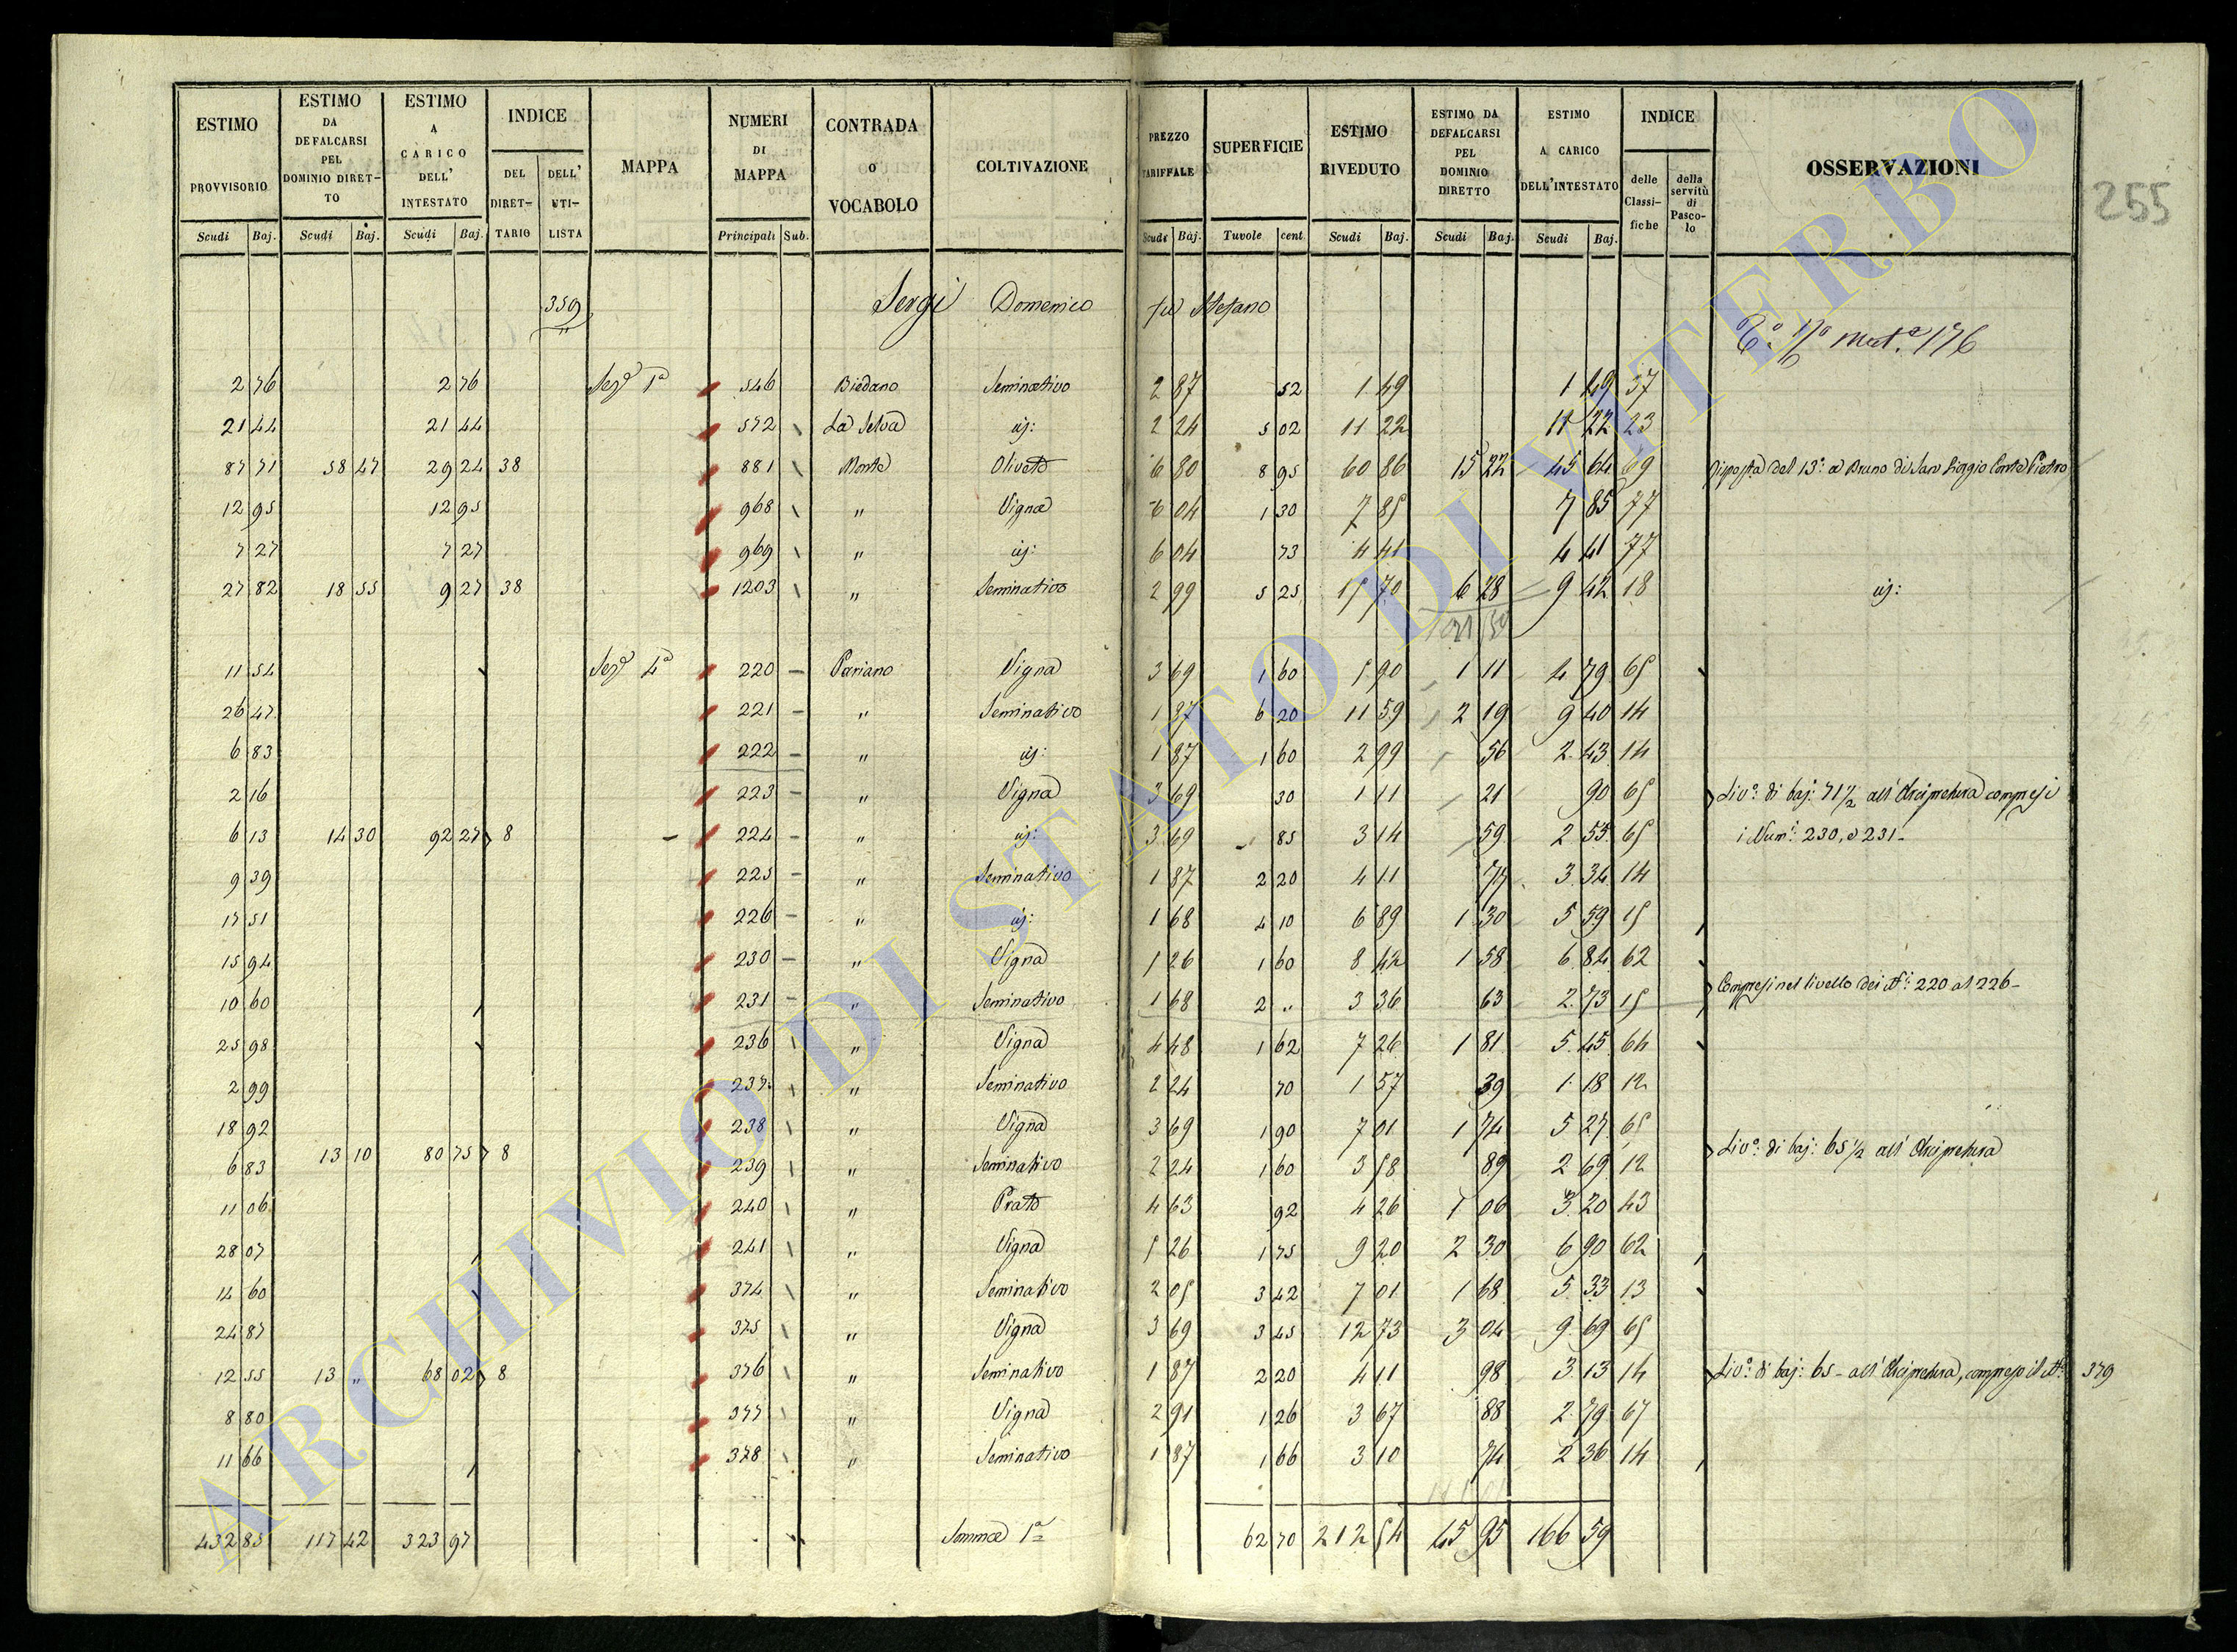 255
ESTIMO PROVVISORIO Scudi Baj. | ESTIMO DA DEFALCARSI PEL DOMINIO DIRET-TO Scudi Baj. | ESTIMO A CARICO DELL' INTESTATO Scudi Baj. | INDICE DEL DIRET-TARIO | DELL' UTI-LISTA | MAPPA | NUMERI DI MAPPA Principali Sub. | CONTRADA o VOCABOLO | COLTIVAZIONE | PREZZO TARIFFALE Scudi Baj. | SUPERFICIE Tavole cent | ESTIMO RIVEDUTO Scudi Baj. | ESTIMO DA DEFALCARSI PEL DOMINIO DIRETTO Scudi Baj. | ESTIMO A CARICO DELL'INTESTATO Scudi Baj. | INDICE delle Classi-fiche | della servitù di Pasco-lo | OSSERVAZIONI
359 Sergi Domenico fu Stefano
mut.e 176
2 76 2 76 Sez.e 1a 546 Biedano Seminativo 2 87 52 1 49 1 49 37
21 44 21 44 572 La Selva id: 2 24 5 02 11 22 11 22 23
87 71 58 47 29 24 38 881 Monte Olivato 6 80 8 95 60 86 15 22 45 64 69 Risposta del 13.a a Bruno di San Giorgio Conte Pietro
12 95 12 95 968 " Vigna 6 04 1 30 7 85 7 85 77
7 27 7 27 969 " id: 6 04 73 4 41 4 41 77
27 82 18 55 9 27 38 1203 " Seminativo 2 99 5 25 15 70 6 28 9 42 18 id:
Sez.e 4a
11 54 220 Pariano Vigna 3 69 1 60 5 90 1 11 4 79 65
26 47 221 " Seminativo 1 87 6 20 11 59 2 19 9 40 14
6 83 222 " id: 1 87 1 60 2 99 56 2 43 14
2 16 223 " Vigna 3 69 30 1 11 21 90 65 Liv.o di baj: 71 1/2 all' Arcipretura compresi
6 13 14 30 92 27 8 224 " id: 3 69 85 3 14 59 2 55 65 i Num.i: 230, e 231
9 39 225 " Seminativo 1 87 2 20 4 11 77 3 34 14
17 51 226 " id: 1 68 4 10 6 89 1 30 5 59 15
15 94 230 " Vigna 5 26 1 60 8 42 1 58 6 84 62
10 60 231 " Seminativo 1 68 2 " 3 36 63 2 73 15 Compresi nel livello dei N.i: 220 al 226
25 98 236 " Vigna 4 48 1 62 7 26 1 81 5 45 64
2 99 237 " Seminativo 2 24 70 1 57 39 1 18 12
18 92 238 " Vigna 3 69 1 90 7 01 1 74 5 27 65
6 83 13 10 80 75 8 239 " Seminativo 2 24 1 60 3 58 89 2 69 12 Liv.o: di baj: 65 1/2 all' Arcipretura
11 06 240 " Prato 4 63 92 4 26 1 06 3 20 43
28 07 241 " Vigna 5 26 1 75 9 20 2 30 6 90 62
14 60 374 " Seminativo 2 05 3 42 7 01 1 68 5 33 13
24 87 375 " Vigna 3 69 3 45 12 73 3 04 9 69 65
12 55 13 " 68 02 8 376 " Seminativo 1 87 2 20 4 11 98 3 13 14 Liv.o: di baj: 65 - all' Arcipretura, compreso il N.o: 379
8 80 377 " Vigna 2 91 1 26 3 67 88 2 79 67
11 66 378 " Seminativo 1 87 1 66 3 10 74 2 36 14
432 85 117 42 323 97 Somma 1a 62 70 212 54 45 95 166 59
ARCHIVIO DI STATO DI VITERBO